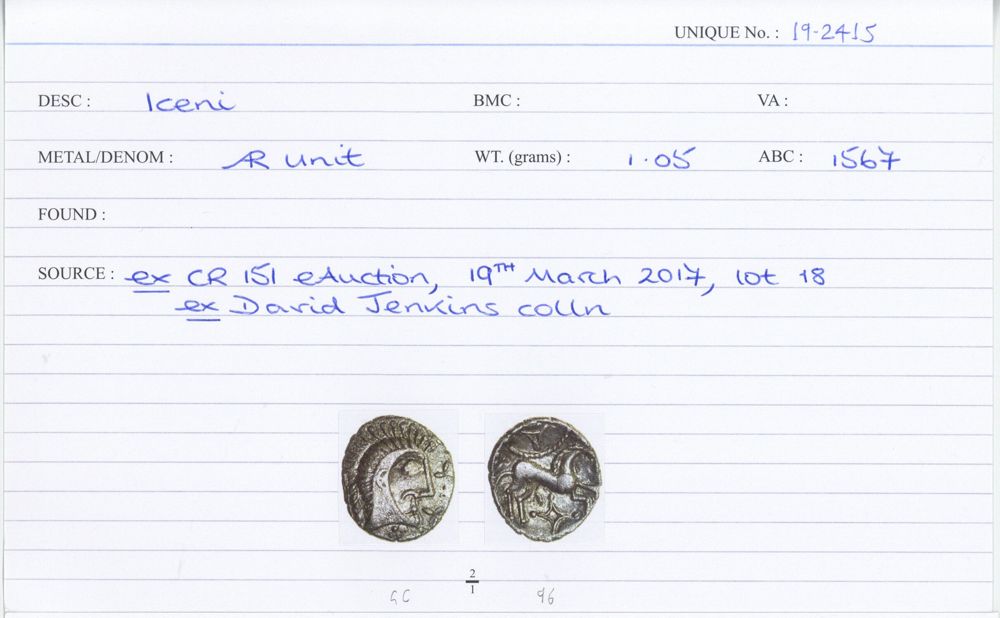 UNIQUE No. : 19-2415
DESC : Iceni BMC : VA :
METAL/DENOM : AR unit WT. (grams) : 1.05 ABC : 1567
FOUND :
SOURCE : ex CR 151 eAuction, 19TH March 2017, lot 18
ex David Jenkins colln
2
1
GC 96